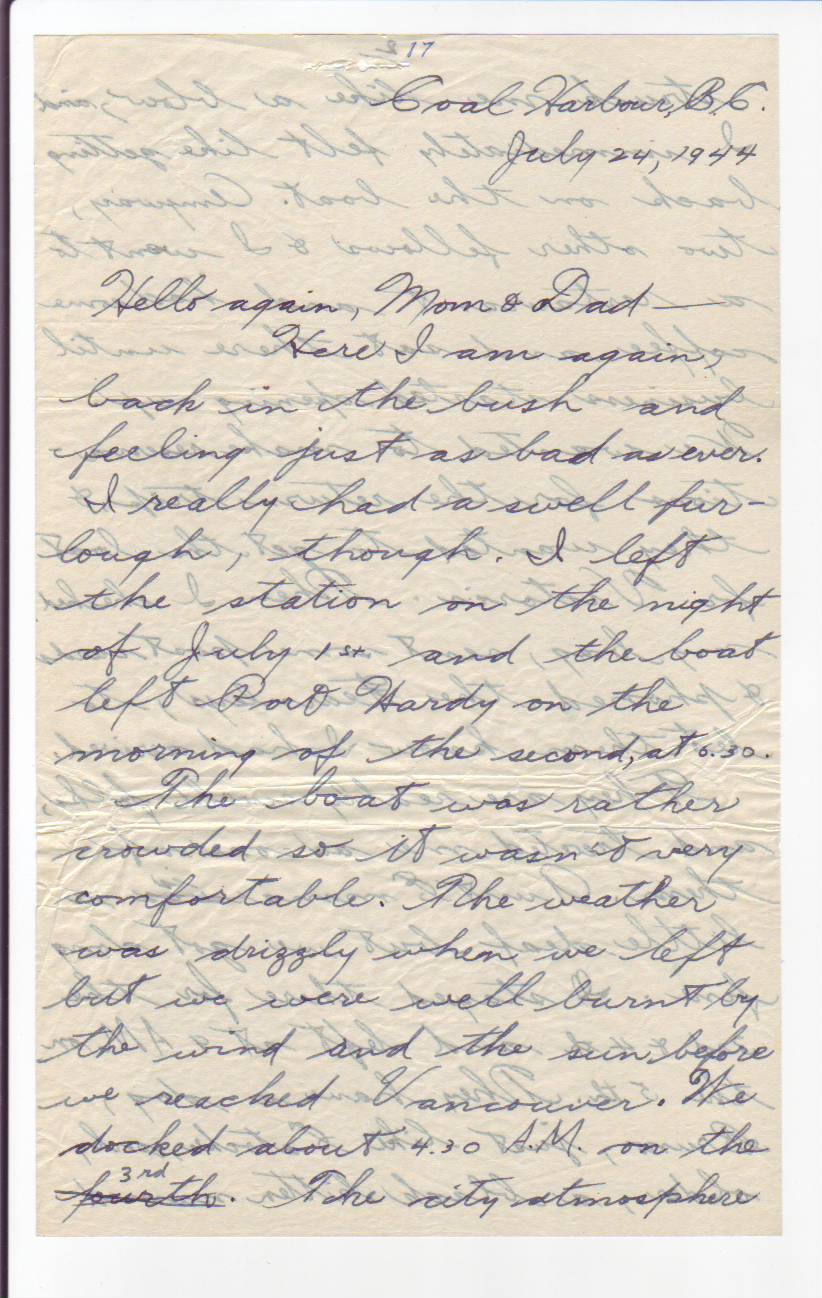 217
Coal Harbour, B.C.
July 24, 1944
Hello again, Mom & Dad —
Here I am again,
back in the bush and
feeling just as bad as ever.
I really had a swell fur-
lough, though. I left
the station on the night
of July 1st and the boat
left Port Hardy on the
morning of the second, at 6.30.
The boat was rather
crowded so it wasn't very
comfortable. The weather
was drizzly when we left
but we were well burnt by
the wind and the sun before
we reached Vancouver. We
docked about 4.30 A.M. on the
3rd
fourth. The city atmosphere